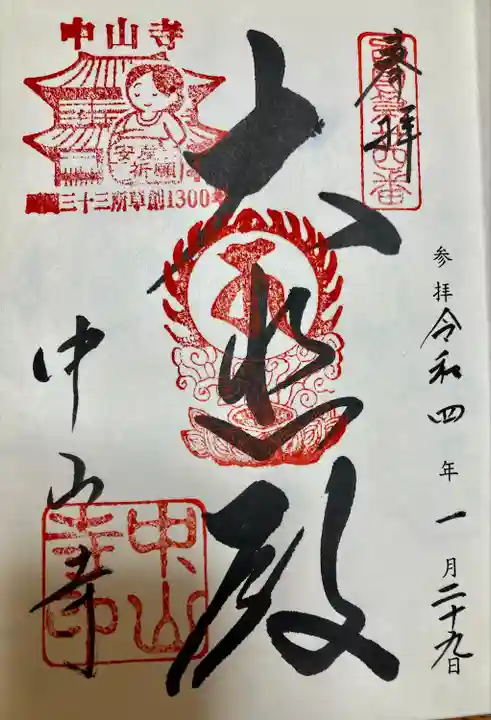 奉拝
西国第廿四番
参拝 令和四年一月二十九日
大悲殿
中山寺
安産祈願
三十三所草創1300年
中山寺
中山寺印